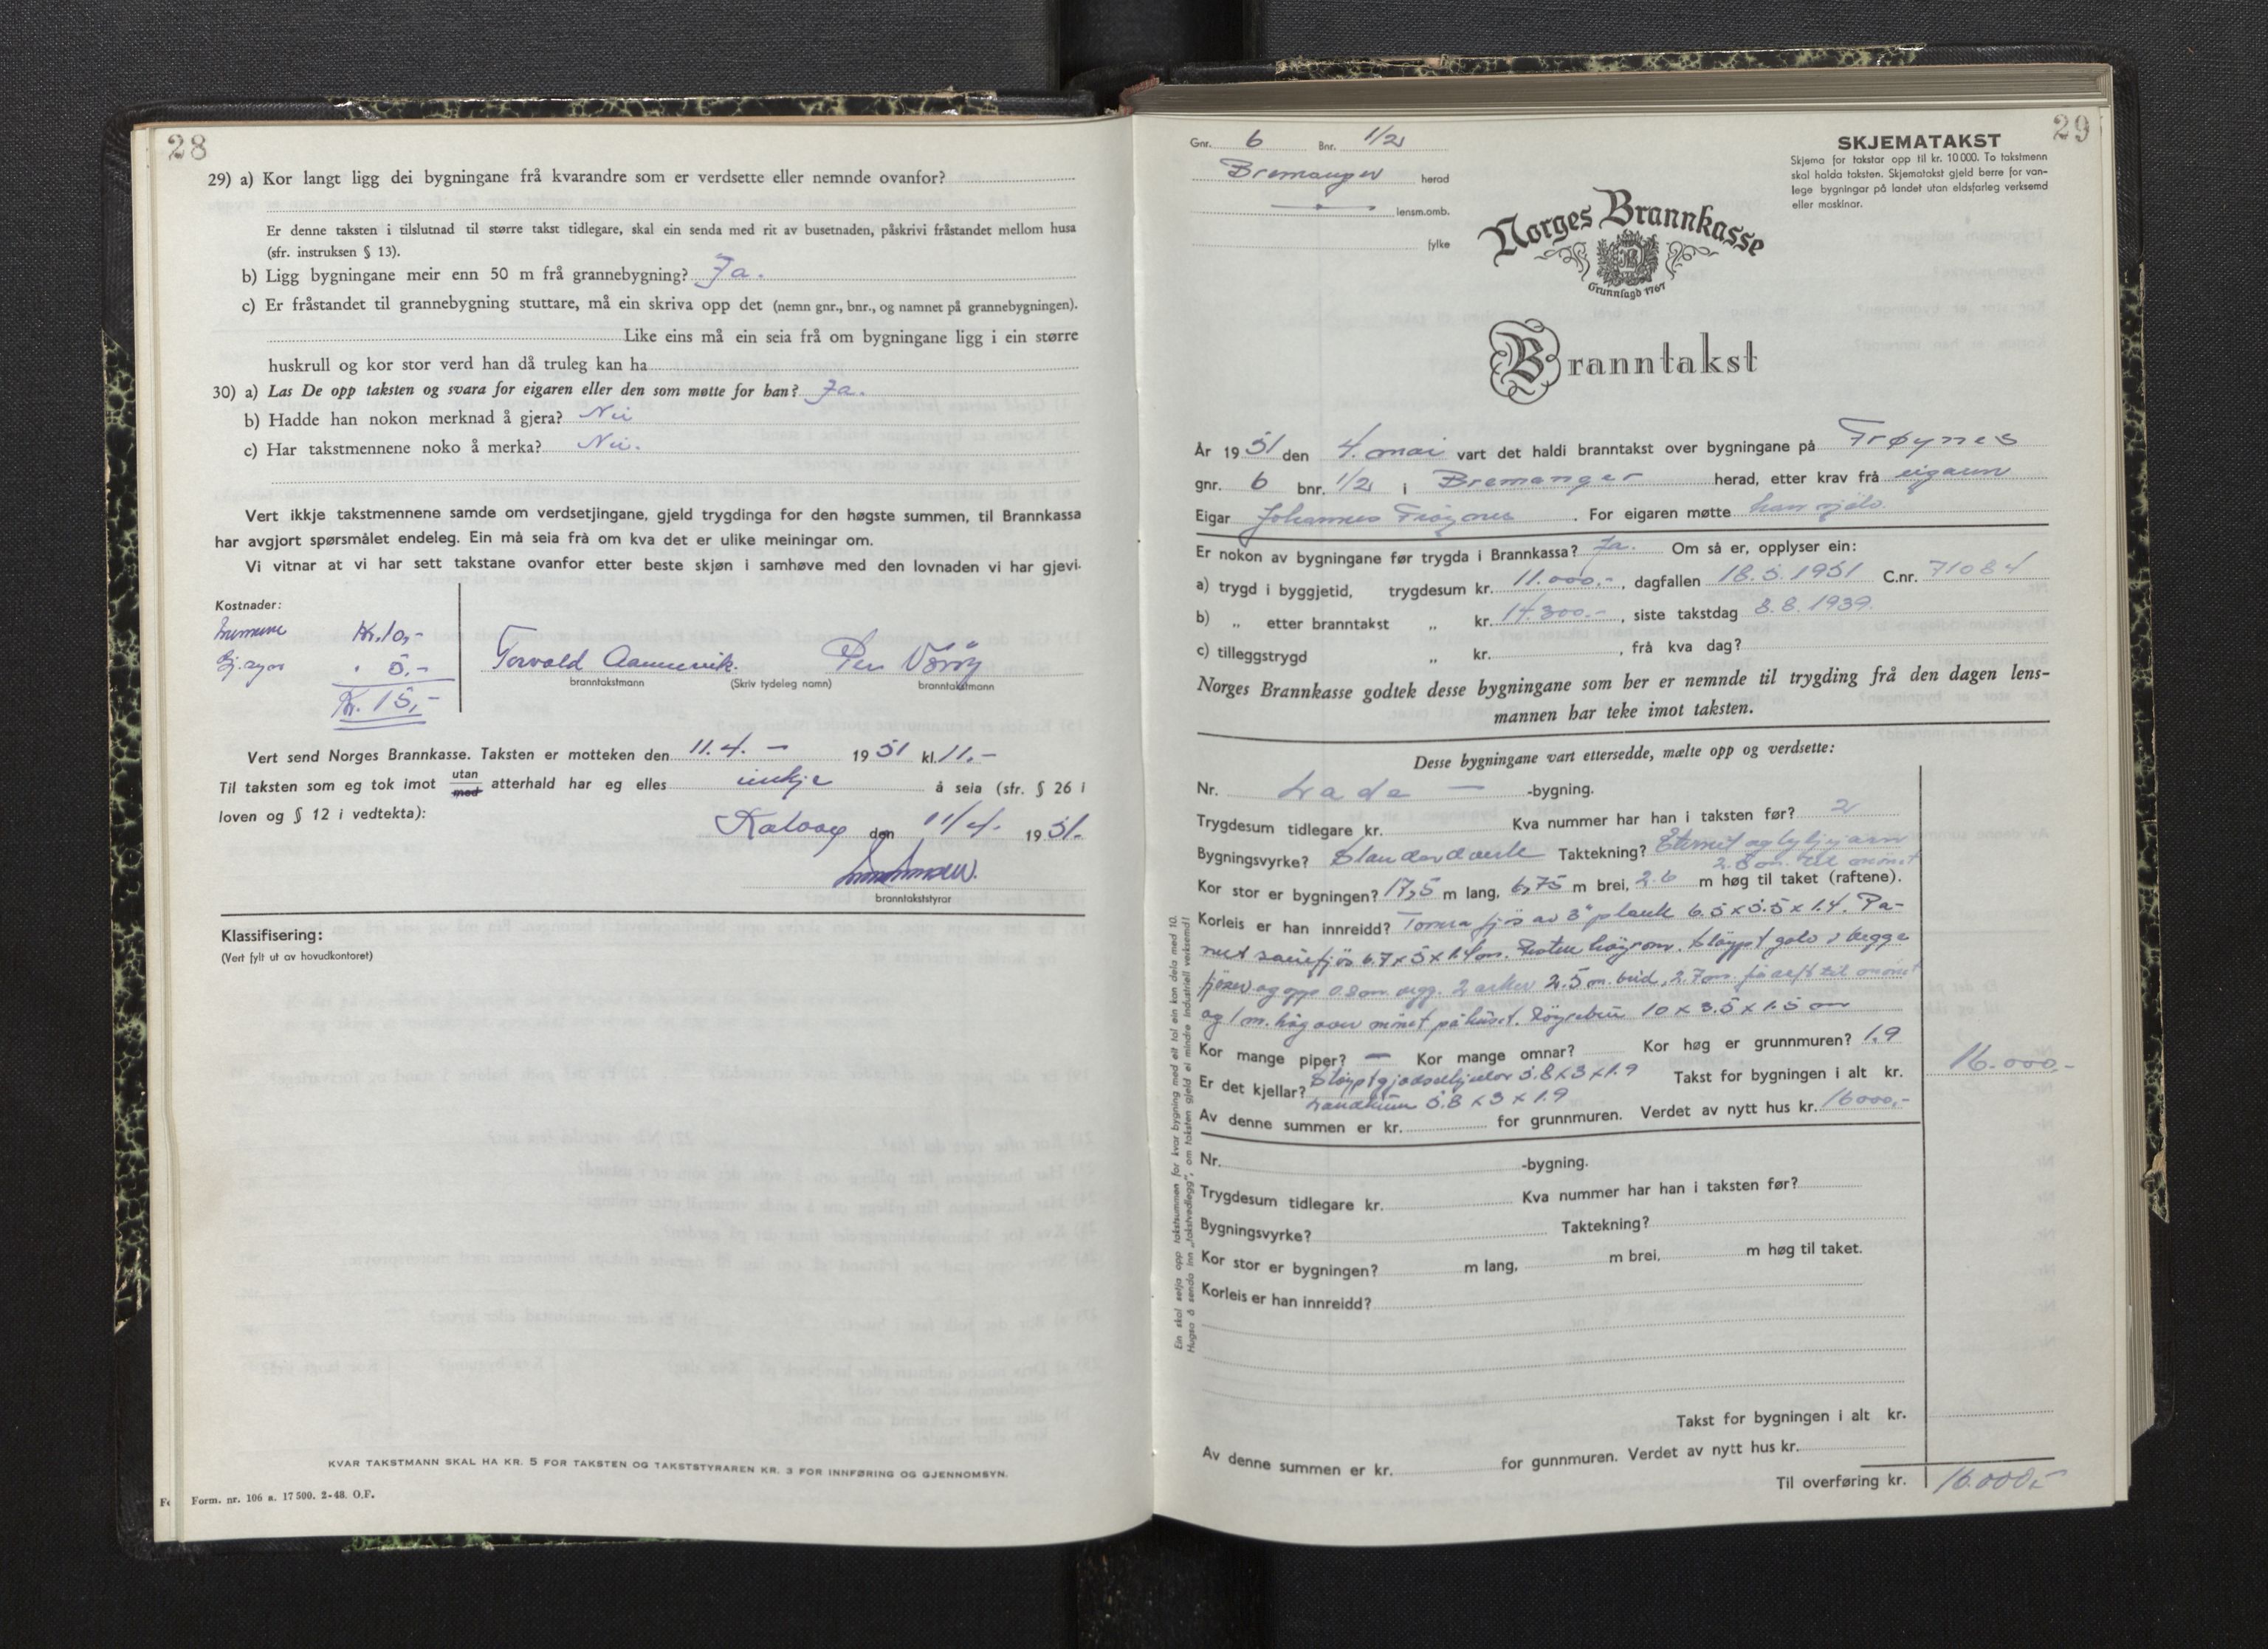 28
29) a) Kor langt ligg dei bygningane frå kvarandre som er verdsette eller nemnde ovanfor?
Er denne taksten i tilslutnad til større takst tidlegare, skal ein senda med rit av busetnaden, påskrivi fråstandet mellom husa
(sfr. instruksen § 13).
b) Ligg bygningane meir enn 50 m frå grannebygning? Ja.
c) Er fråstandet til grannebygning stuttare, må ein skriva opp det (nemn gnr., bnr., og namnet på grannebygningen).
Like eins må ein seia frå om bygningane ligg i ein større
huskrull og kor stor verd han då truleg kan ha
30) a) Las De opp taksten og svara for eigaren eller den som møtte for han? Ja.
b) Hadde han nokon merknad å gjera? Nei
c) Har takstmennene noko å merka? Nei.
Vert ikkje takstmennene samde om verdsetjingane, gjeld trygdinga for den høgste summen, til Brannkassa
har avgjort spørsmålet endeleg. Ein må seia frå om kva det er ulike meiningar om.
Vi vitnar at vi har sett takstane ovanfor etter beste skjøn i samhøve med den lovnaden vi har gjevi.
Kostnader:
Kr. 10,-
" 5,-
Kr. 15,-
Torvald
branntakstmann (Skriv tydeleg namn) branntakstmann
Vert send Norges Brannkasse. Taksten er motteken den 11.4. - 1951 kl. 11.-
Til taksten som eg tok imot utan med atterhald har eg elles inkje å seia (sfr. § 26 i
loven og § 12 i vedtekta):
Kalvåg den 11/4. 1951.
branntakststyrar
Klassifisering:
(Vert fylt ut av hovudkontoret)
KVAR TAKSTMANN SKAL HA KR. 5 FOR TAKSTEN OG TAKSTSTYRAREN KR. 3 FOR INNFØRING OG GJENNOMSYN.
Form. nr. 106 a. 17 500. 2-48. O.F.
29
Gnr. 6 Bnr. 1/2
Bremanger herad
lensm.omb.
fylke
SKJEMATAKST
Skjema for takstar opp til kr. 10 000. To takstmenn
skal halda taksten. Skjematakst gjeld berre for van-
lege bygningar på landet utan eldsfarleg verksemd
eller maskinar.
Norges Brannkasse
Grunnlagd 1767
Branntakst
År 1951 den 4. mai vart det haldi branntakst over bygningane på Frøynes
gnr. 6 bnr. 1/2 i Bremanger herad, etter krav frå eigaren
Eigar Johannes Frøynes. For eigaren møtte han sjølv.
Er nokon av bygningane før trygda i Brannkassa? Ja. Om så er, opplyser ein:
a) trygd i byggjetid, trygdesum kr. 11.000.-, dagfallen 18.5.1951 C.nr. 71084
b) „ etter branntakst „ kr. 14.300.-, siste takstdag 8.8.1939.
c) tilleggstrygd „ kr. , frå kva dag?
Norges Brannkasse godtek desse bygningane som her er nemnde til trygding frå den dagen lens-
mannen har teke imot taksten.
Desse bygningane vart ettersedde, mælte opp og verdsette:
Nr. Lada - -bygning.
Trygdesum tidlegare kr. Kva nummer har han i taksten før? 2
Bygningsvyrke? Standardverk Taktekning? Eternit og bylgjejarn
2.8 m. til mønet
Kor stor er bygningen? 17,5 m lang, 6,75 m brei, 2.6 m høg til taket (raftene).
Korleis er han innreidd? fjøs av 3" plank 6.5 x 5.5 x 1.4. Pa-
nelt sauefjøs 6.7 x 5 x 1.4 m. høyrom. Støypt golv i begge
fjøser og opp 0.8 m. vegg. 2 arker 2.5 m. breid, 2.7 m. til mønet
og 1 m. høg over mønet på huset. 10 x 3.5 x 1.5 m
Kor mange piper? - Kor mange omnar? Kor høg er grunnmuren? 1.9
Er det kjellar? Støypt gjødselkjellar 5.8 x 3 x 1.9 Takst for bygningen i alt kr. 16.000.-
Landkum 5.8 x 3 x 1.9
Av denne summen er kr. for grunnmuren. Verdet av nytt hus kr. 16000,-
Nr. -bygning.
Trygdesum tidlegare kr. Kva nummer har han i taksten før?
Bygningsvyrke? Taktekning?
Kor stor er bygningen? m lang, m brei, m høg til taket.
Korleis er han innreidd?
Takst for bygningen i alt kr.
Av denne summen er kr. for gunnmuren. Verdet av nytt hus kr.
Til overføring kr. 16.000,-
Ein skal setja opp takstsummen for kvar bygning med eit tal ein kan dela med 10.
Hugsa å senda inn „takstvedlegg", om taksten gjeld ei mindre industriell verksemd!